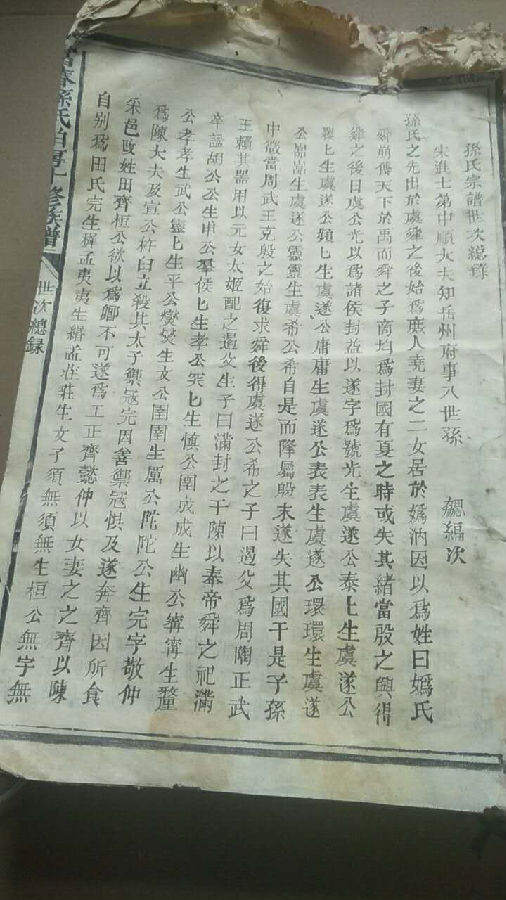 孫氏宗譜世次總錄
宋進士第中順大夫知岳州府事八世孫 勰編次
孫氏之先出於虞舜之後始爲庶人堯妻之二女居於嬀汭因以爲姓曰嬀氏
舜前傳天下於禹而舜之子商均爲封國有夏之時或失其緒當殷之興得
舜之後曰虞公光以爲諸侯封益以遂字爲號光生虞遂公泰匕生虞遂公
匕生虞遂公類匕生虞遂公庸庸生虞遂公表表生虞遂公環環生虞遂
公 生虞遂公靈靈生虞希公希自是而降屬殷末遂失其國于是子孫
中微當周武王克殷之始復求舜後得虞遂公希之子曰遏父爲周陶正武
王賴其器用以元女太姬配之遏父生子曰滿封之于陳以奉帝舜之祀滿
卒謚胡公公生申公犀侯匕生孝公突匕生慎公圉戎戎生幽公寧寧生釐
公孝孝生武公靈匕生平公燮燮生文公圉圉生厲公陀陀公生完字敬仲
爲陳大夫及宣公杵臼立殺其太子禦冦完因善禦冦惧及遂奔齊因所食
采邑改姓田齊桓公欲以爲卿不可遂爲工正齊懿仲以女妻之之齊以陳
自别爲田氏完生穉孟夷夷生緡孟莊莊生文子須無須無生桓公無宇無
富春孫氏 修宗譜
世次總錄